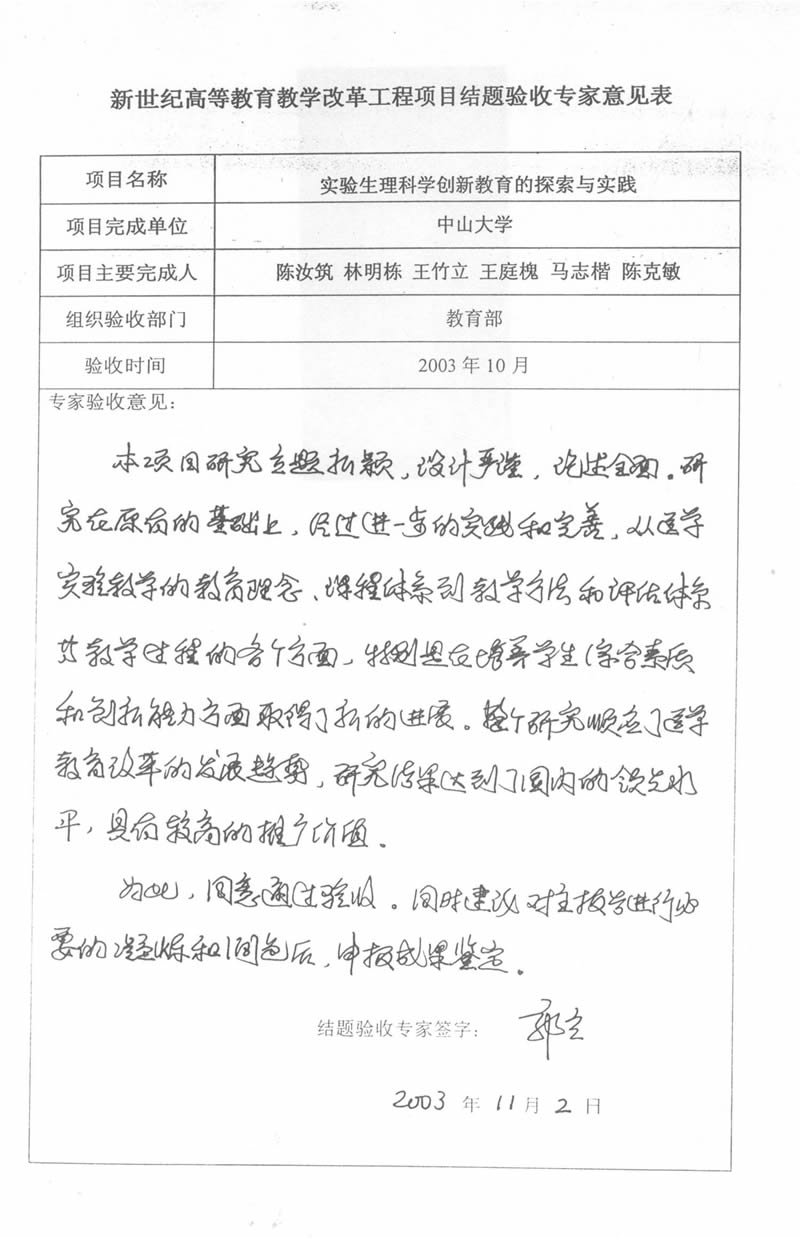 新世纪高等教育教学改革工程项目结题验收专家意见表
项目名称 实验生理科学创新教育的探索与实践
项目完成单位 中山大学
项目主要完成人 陈汝筑 林明栋 王竹立 王庭槐 马志楷 陈克敏
组织验收部门 教育部
验收时间 2003年10月
专家验收意见：
本项目研究立题新颖，设计严谨，论述全面。研
究在原有的基础上，经过进一步的实践和完善，从医学
实验教学的教育理念、课程体系到教学方法和评估体系
等教学过程的各个方面，特别是在培养学生综合素质
和创新能力方面取得了新的进展。整个研究顺应了医学
教育改革的发展趋势，研究结果达到了国内的领先水
平，具有较高的推广价值。
为此，同意通过验收。同时建议对主报告进行必
要的凝炼和润色后，申报成果鉴定。
结题验收专家签字：
2003 年 11 月 2 日